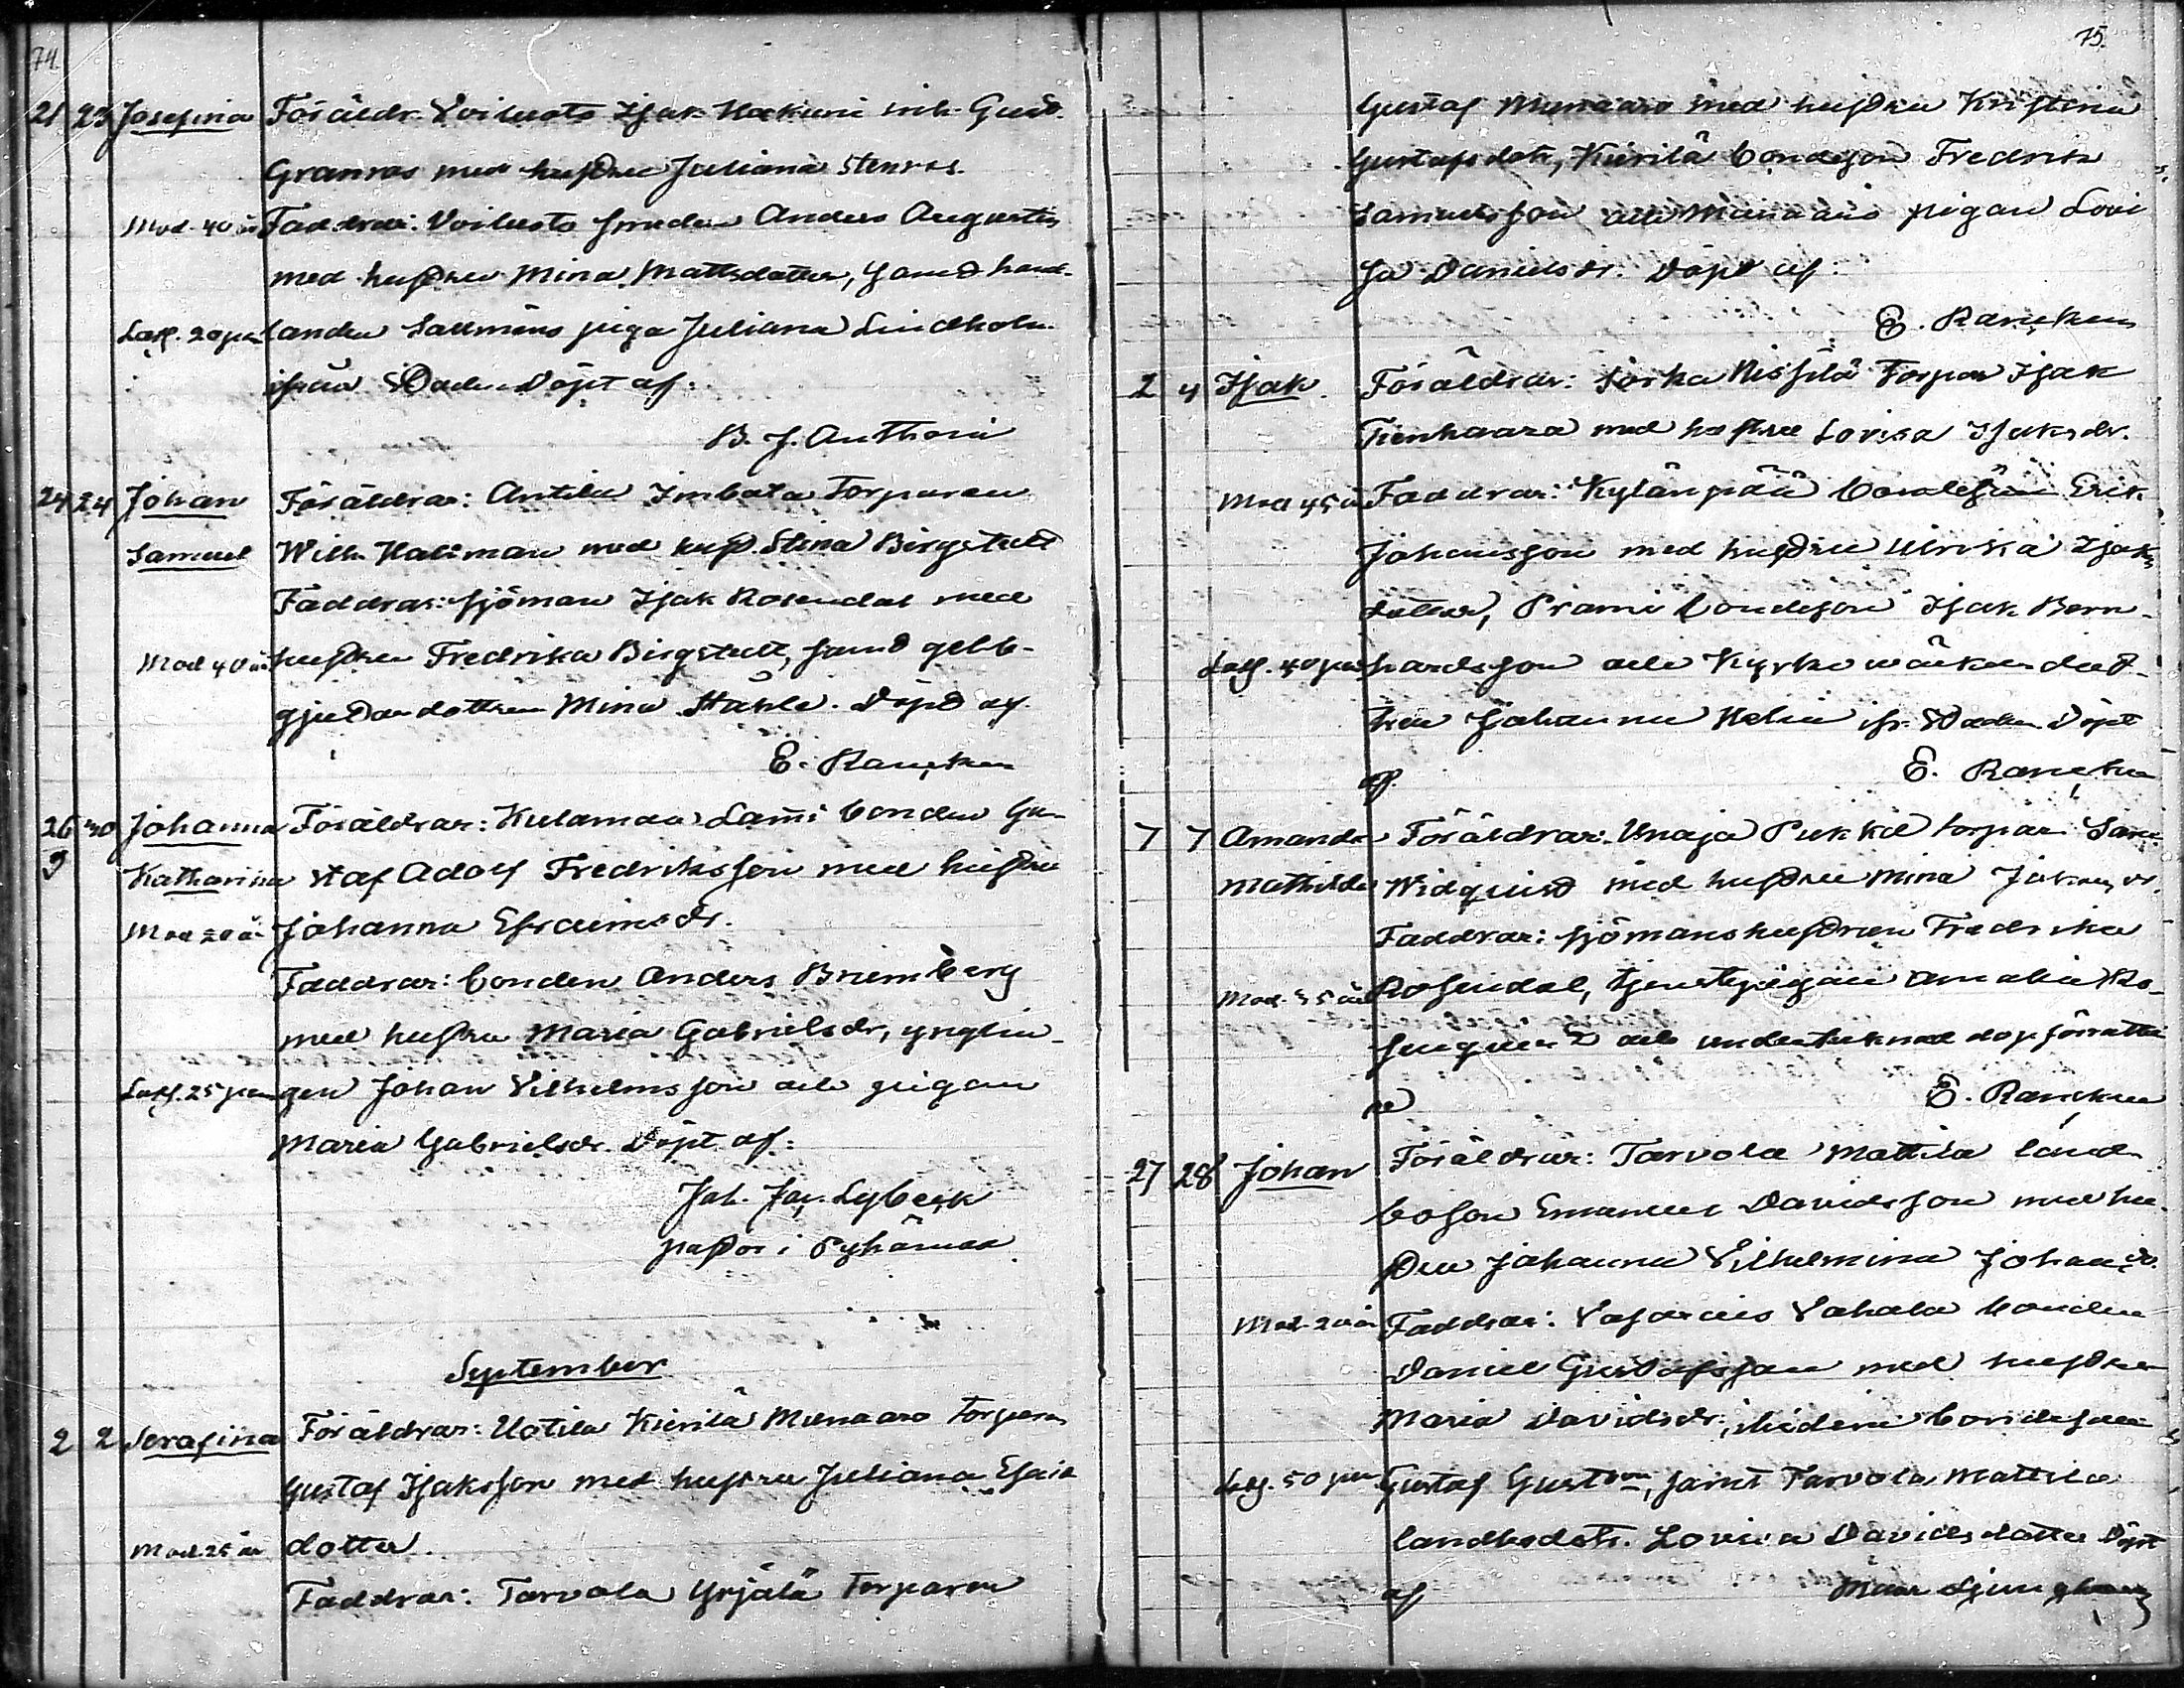 74.
21 23 Josefina Föräldr. Voiluoto Isak Hakuni inh. Gust.
Granroos med hustru Juliana Stenros.
Mod. 40 år Faddrar: Voiluoto Anders Augustin
med hustru Mina Mattsdotter, samt hand-
landen Sallmens piga Juliana Lindholm
ifrån Staden Döpt af:
B. J. Anthoni
24 24 Johan Föräldrar: Antila Imbata Torparen
Samuel Wilh. Haliman med hust. Stina Birgstedt
Faddrar: sjöman Isak Rosendal med
Mod 40 år hustru Fredrika Birgstedt, samt gelb-
gjutaredottren Mina Ståhle. Döpt af.
E. Rancken
26 30 Johanna Föräldrar: Kulamaa Lammi bonden Gu-
9
Katharina staf Adolf Fredriksson med hustru
Mod 20 år Johanna Efraimsdr.
Faddrar: bonden Anders Brimberg
med hustru Maria Gabrielsdr, ynglin-
25 gen Johan Vilhelmsson och pigan
Maria Gabrielsdr. Döpt af:
Joh. Jac. Lybeck
pastor i Pyhämaa
September
2 2 Serafina Föräldrar: Untila Kierilä Munaaro torparen
Gustaf Isaksson med hustru Juliana Esaia
Mod 25 år dotter.
Faddrar: Tarvola Yrjälä torparen
75.
Gustaf Munaaro med hustru Kristina
Gustafsdotr, Kierilä bondeson Fredrik
Samuelsson och Munaaro pigan Lovi
sa Danielsdr. Döpt af:
E. Rancken
2 4 Isak. Föräldrar: Sorka Nissilä Torpar Isak
Tienhaara med hustru Lovisa Isaksdr.
Mod 45 år Faddrar: Kylänpää bondeson Erik
Johansson med hustru Ulrika Isaks
dotter, Prami bondeson Isak Bern-
40 hardsson och Kyrkowäktaredot-
tren Johanna Helin ifr. Staden. Döpt
af. E. Rancken
7 7 Amanda Föräldrar: Unaja Pukkil torpar Sam.
Mathilda Widquist med hustru Mina Johansdr.
Faddrar: sjömanshustrun Fredrika
Mod. 35 år Rosendal, tjenstepigan Amalia Ro-
senquist och undertecknad dopförrätta
re E. Rancken
27 28 Johan Föräldrar: Tarvola Mattila land-
boson Emanuel Davidsson med hu-
stru Johanna Vilhelmina Johansdr.
Mod. 20 år Faddrar: Vahala bonden
Daniel Gustafsson med hustru
Maria Davidsdr, bondeson
50 Gustaf Gustson, samt Tarvola Mattila
landbodotr. Lovisa Davidsdotter Döpt
af